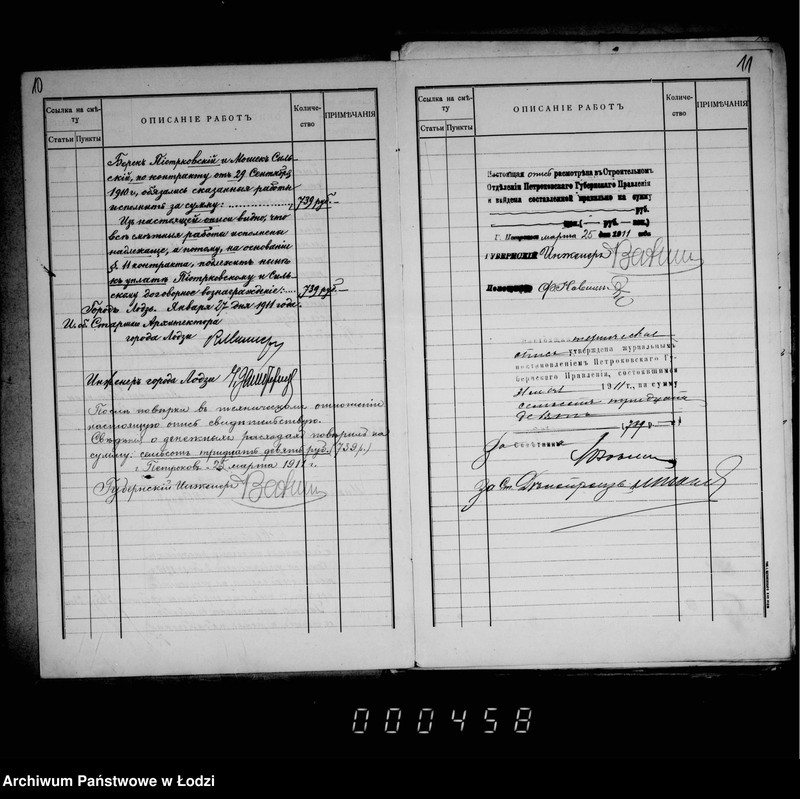 10
Ссылка на смѣ-
ту
ОПИСАНІЕ РАБОТЪ
Количе-
ство
ПРИМѢЧАНІЯ
Статьи
Пункты
Берекъ Піотрковскій и Мошекъ Силь-
скій, по контракту отъ 29 Сентября
1910 г, обязались сказанныя работы
исполнить за сумму:
739 руб. —
Изъ настоящей описи видно, что
всѣ смѣтныя работы исполнены
надлежаще, а потому, на основаніи
§ 11 контракта, подлежитъ
къ уплатѣ Піотрковскому и Силь-
скому договорное вознагражденіе:
739 руб. —
Городъ Лодзь. Января 27 дня 1911 года.
И. об. Старшаго Архитектора
города Лодзи
Инженеръ города Лодзи
Послѣ повѣрки въ техническомъ отношеніи
настоящую опись свидѣтельствую.
Свѣдѣнія о денежныхъ расходахъ повѣрилъ на
сумму: семьсотъ тридцать девять руб. (739 р.)
г. Петроковъ 25 марта 1911 г.
Губернскій Инженеръ
11
Ссылка на смѣ-
ту
ОПИСАНІЕ РАБОТЪ
Количе-
ство
ПРИМѢЧАНІЯ
Статьи
Пункты
Настоящая опись разсмотрѣна въ Строительномъ
Отдѣленіи Петроковскаго Губернскаго Правленія
и найдена составленной правильно на сумму
руб.
руб. (— руб. — коп.)
Г. Петроковъ марта 25 дня 1911 года
ГУБЕРНСКІЙ Инженеръ
Настоящая техническая
опись утверждена журнальнымъ
постановленіемъ Петроковскаго Гу-
бернскаго Правленія, состоявшимся
1911 г., на сумму
семьсотъ тридцать
девять
(739 р. —)
За Совѣтника
За Ст.
000458
Archiwum Państwowe w Łodzi